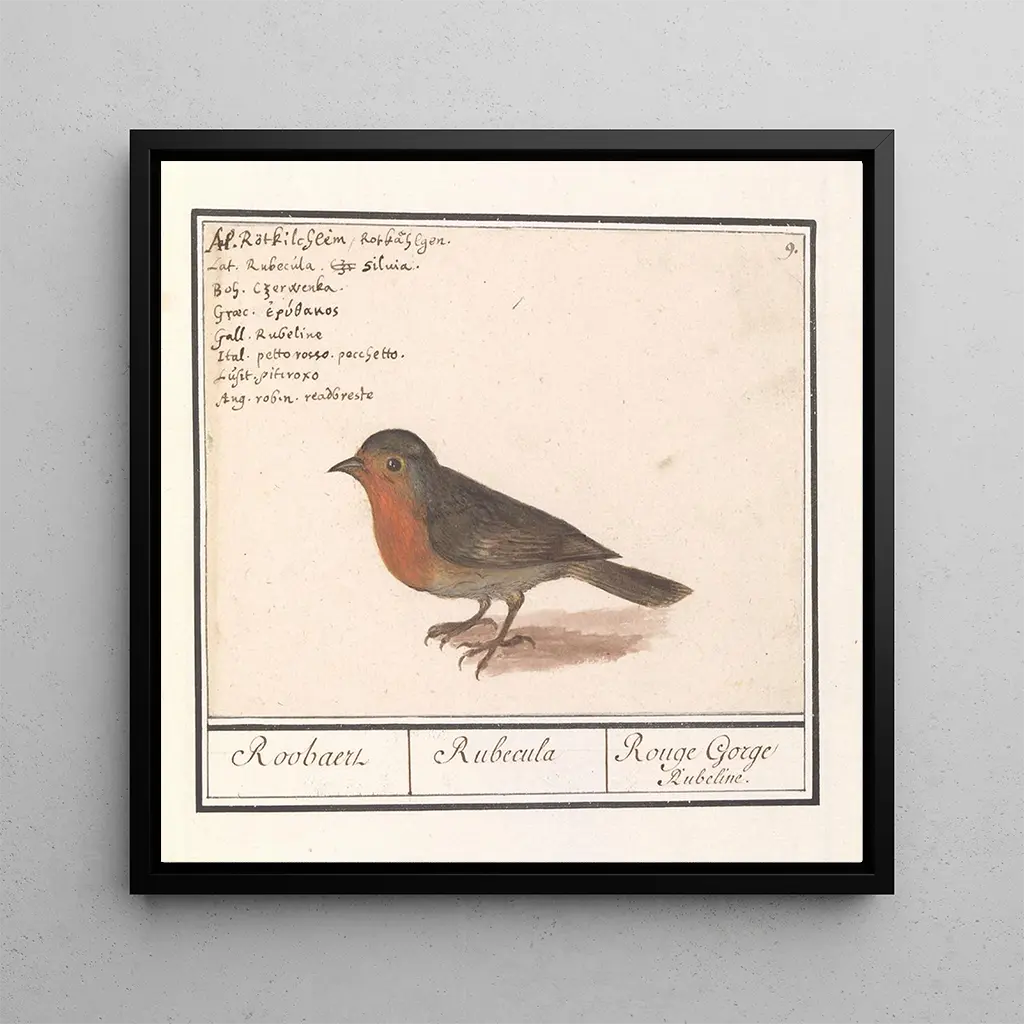 Al. Rötkilchlein, Rotkählgen.
9.
Lat. Rubecúla. Silvia.
Boh. Czerwenka.
Græc. ἐρύθακος
Gall. Rubeline
Ital. petto rosso. pecchetto.
Lúsit. pitiroxo
Ang. robin. readbreste
Roobaert
Rubecula
Rouge Gorge
Rubeline.